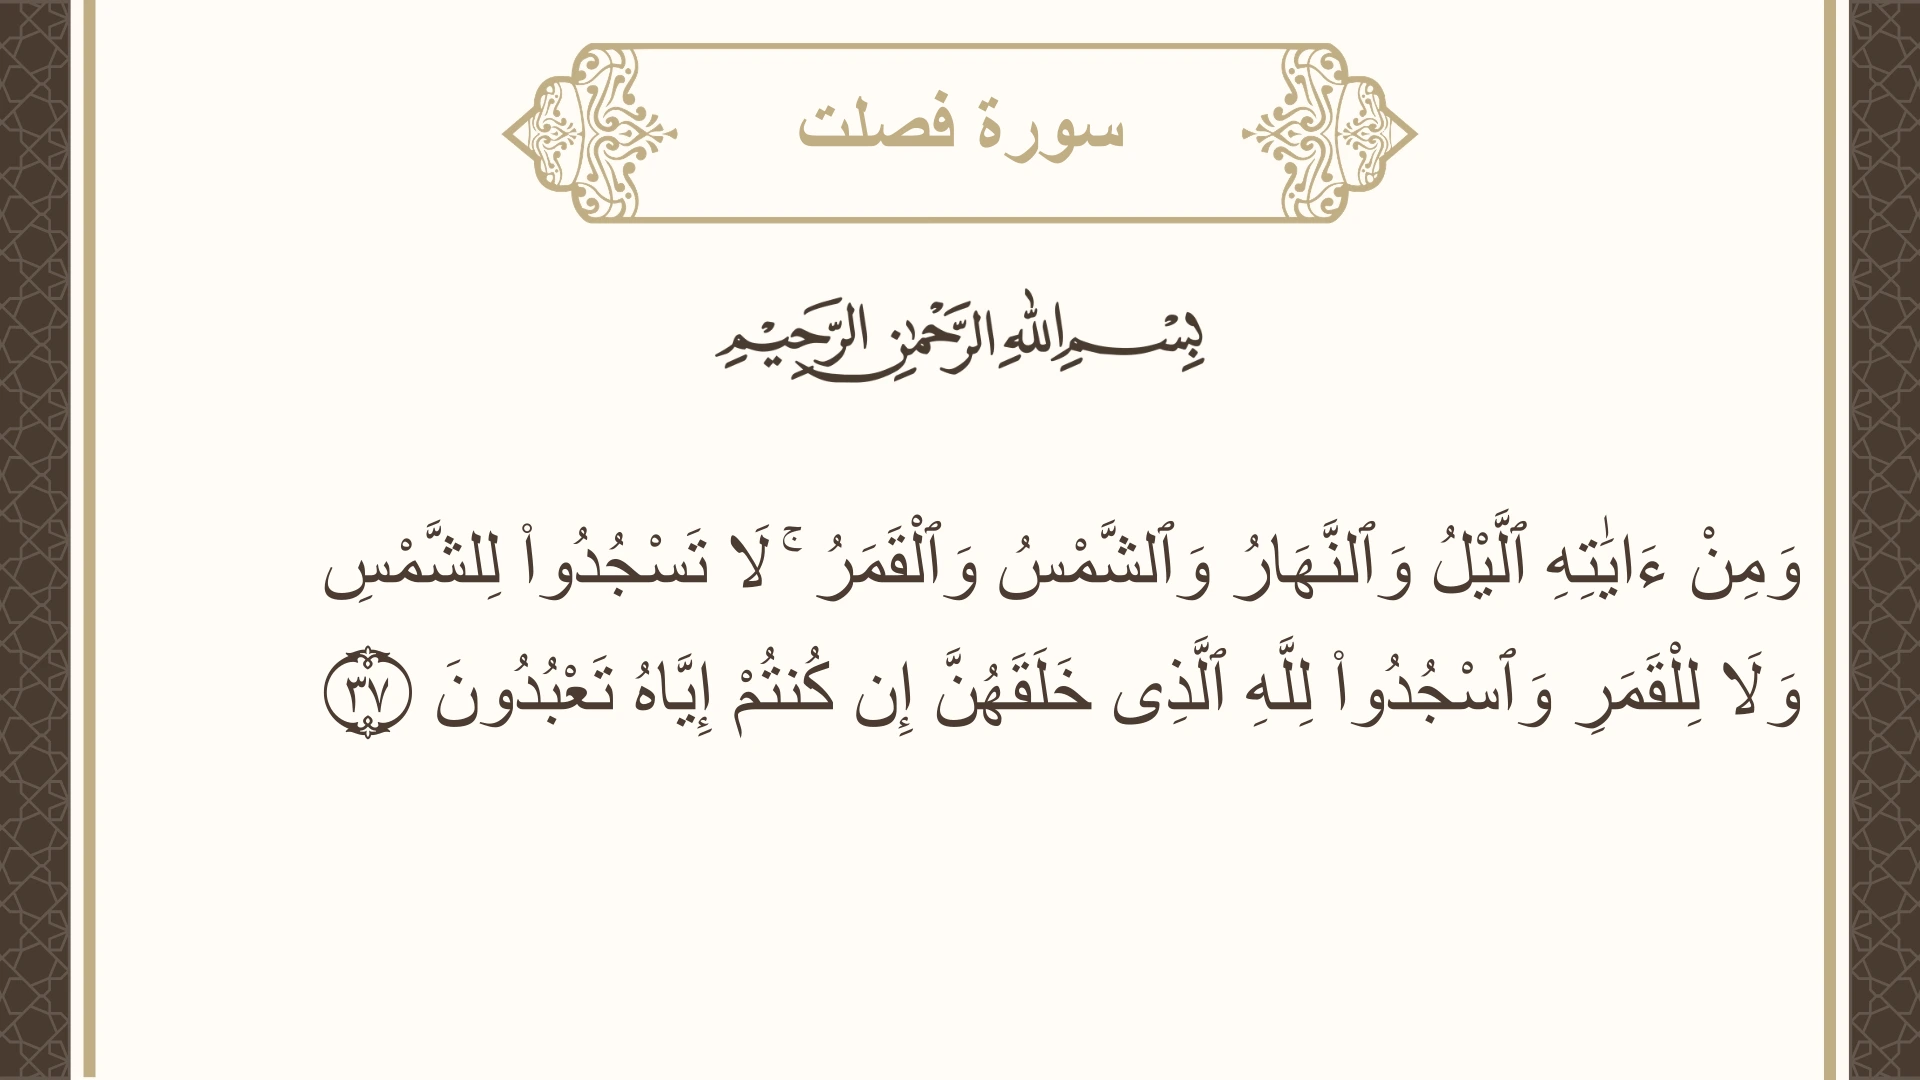 سورة فصلت
بِسْمِ اللهِ الرَّحْمٰنِ الرَّحِيْمِ
وَمِنْ ءَايَٰتِهِ ٱلَّيْلُ وَٱلنَّهَارُ وَٱلشَّمْسُ وَٱلْقَمَرُ ۚ لَا تَسْجُدُوا۟ لِلشَّمْسِ
وَلَا لِلْقَمَرِ وَٱسْجُدُوا۟ لِلَّهِ ٱلَّذِى خَلَقَهُنَّ إِن كُنتُمْ إِيَّاهُ تَعْبُدُونَ ٣٧